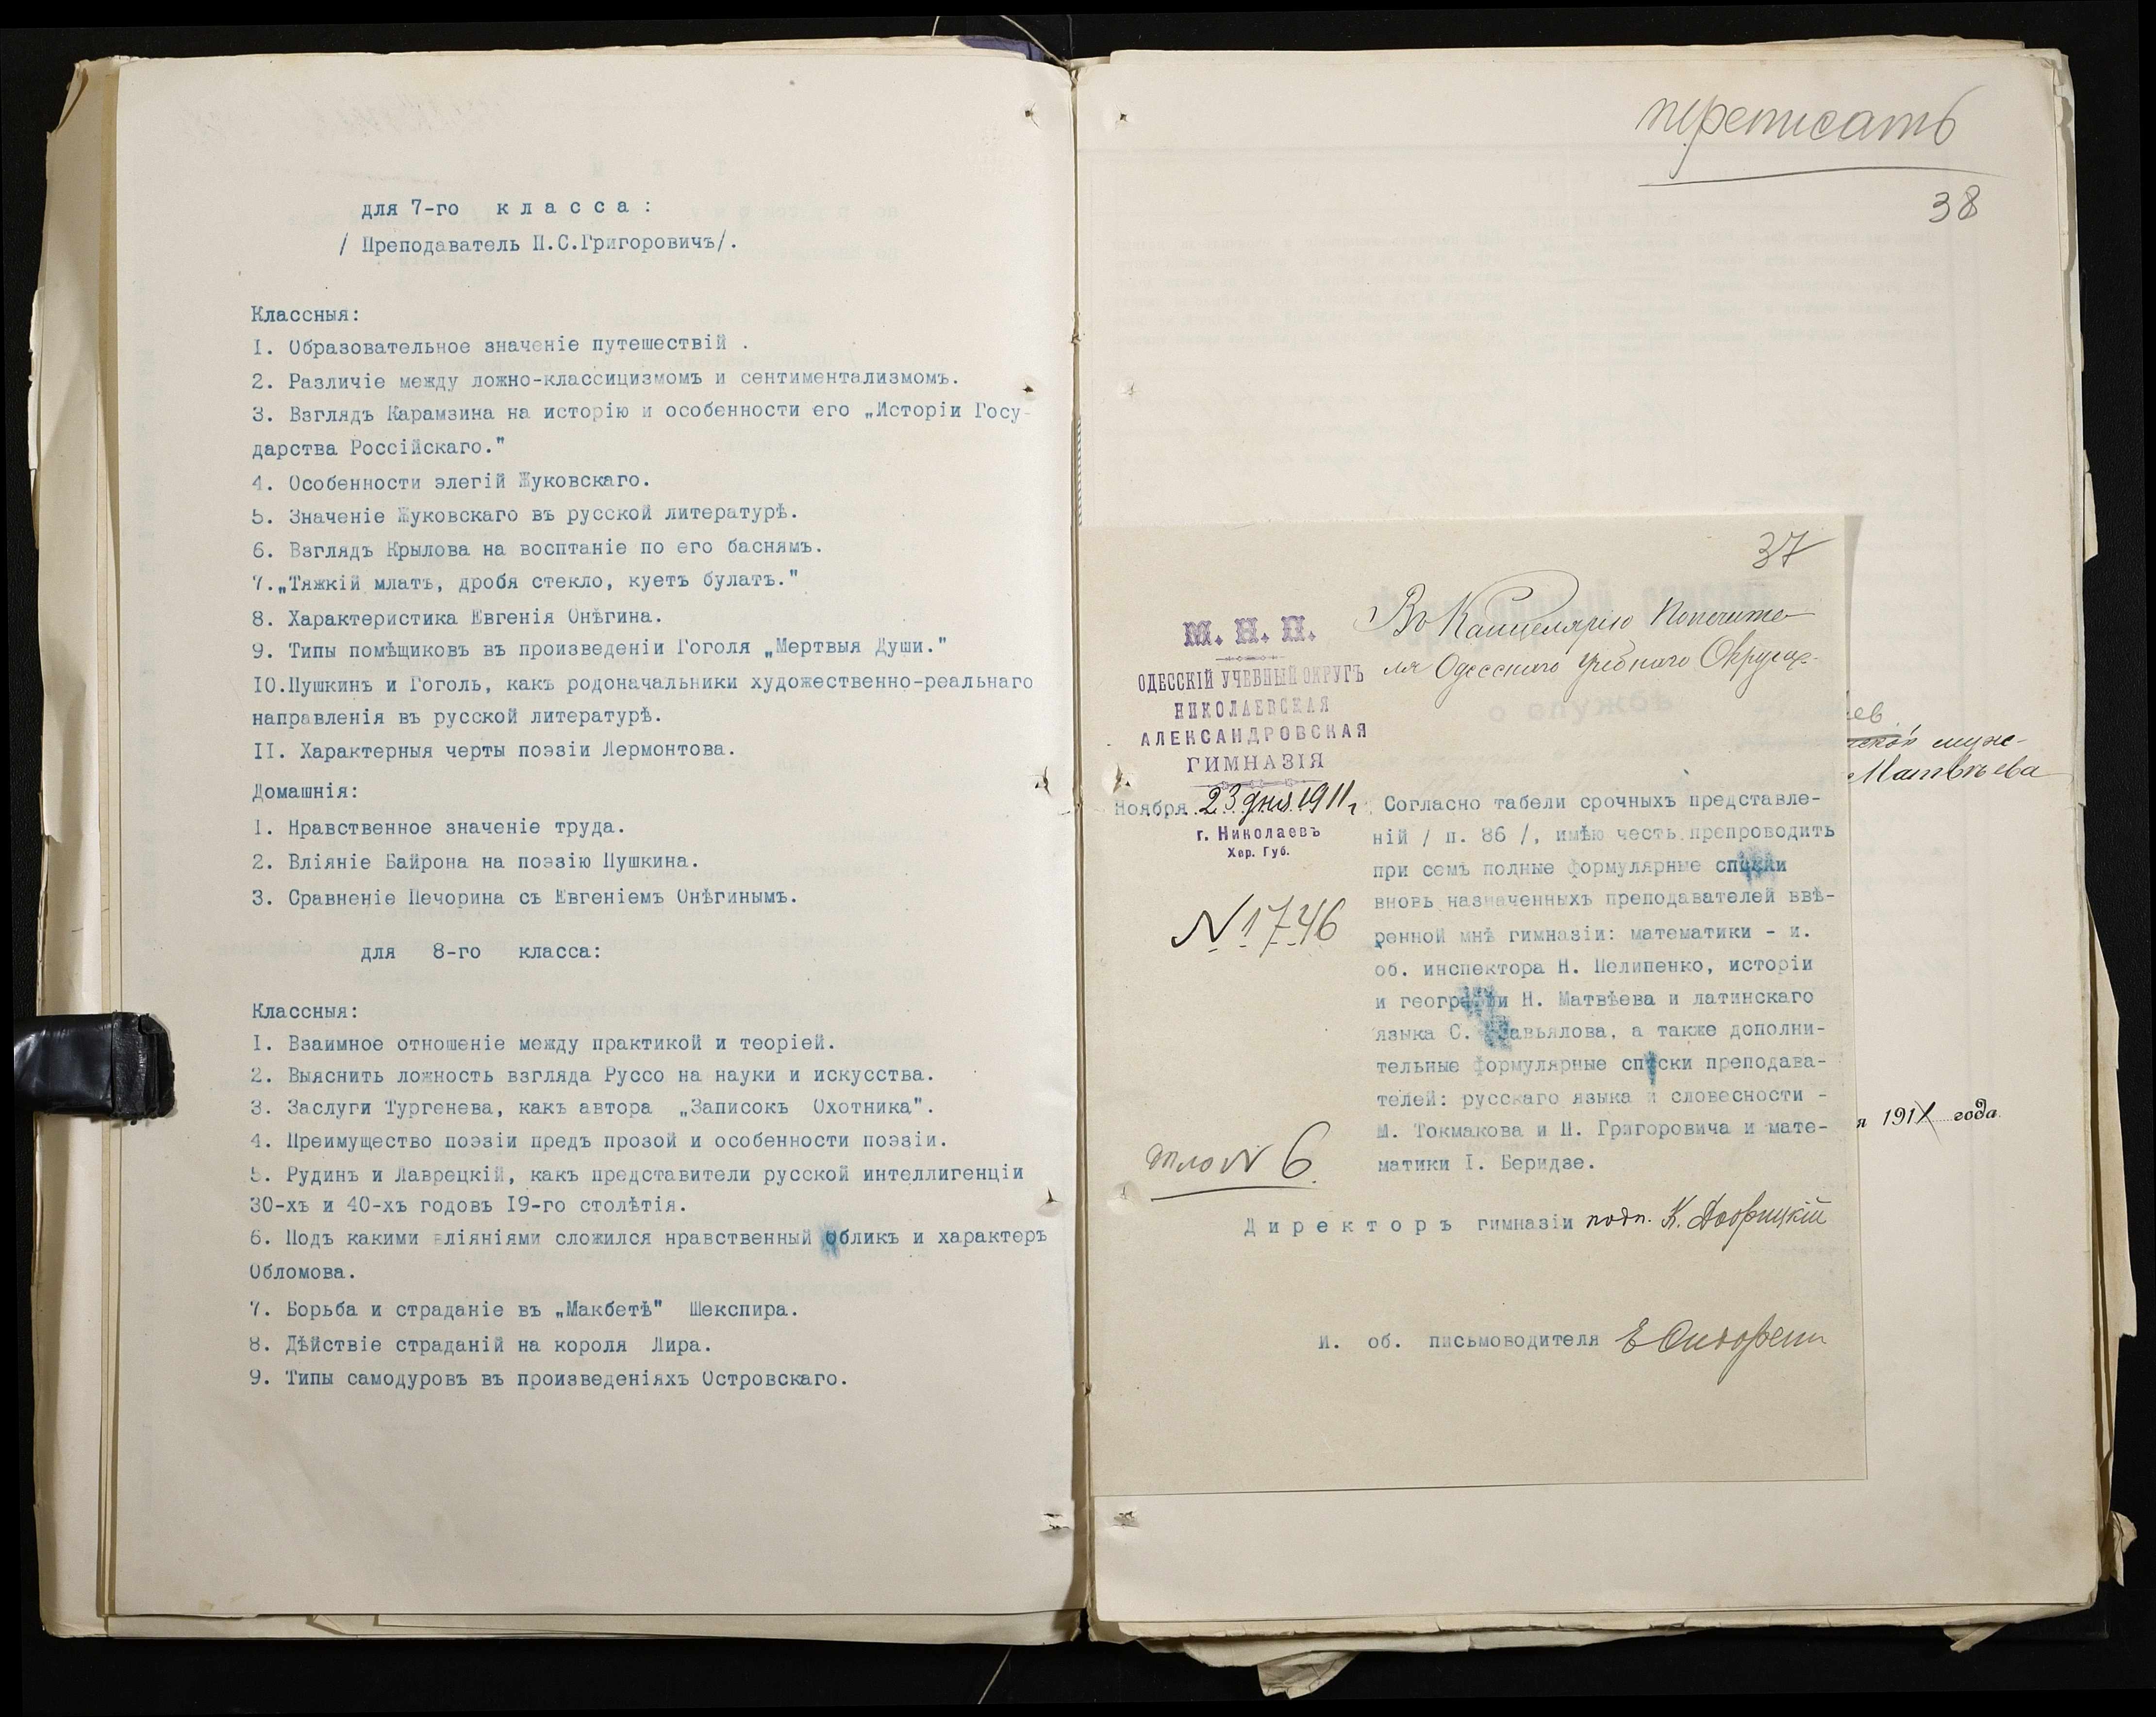 для 7-го класса:
/ Преподаватель П.С.Григоровичъ/.
Классныя:
I. Образовательное значеніе путешествій .
2. Различіе между ложно-классицизмомъ и сентиментализмомъ.
3. Взглядъ Карамзина на исторію и особенности его „Исторіи Госу-
дарства Россійскаго."
4. Особенности элегій Жуковскаго.
5. Значеніе Жуковскаго въ русской литературѣ.
6. Взглядъ Крылова на восптаніе по его баснямъ.
7.„Тяжкій млатъ, дробя стекло, куетъ булатъ."
8. Характеристика Евгенія Онѣгина.
9. Типы помѣщиковъ въ произведеніи Гоголя „Мертвыя Души."
IO.Пушкинъ и Гоголь, какъ родоначальники художественно-реальнаго
направленія въ русской литературѣ.
II. Характерныя черты поэзіи Лермонтова.
Домашнія:
I. Нравственное значеніе труда.
2. Вліяніе Байрона на поэзію Пушкина.
3. Сравненіе Печорина съ Евгеніемъ Онѣгинымъ.
для 8-го класса:
Классныя:
I. Взаимное отношеніе между практикой и теоріей.
2. Выяснить ложность взгляда Руссо на науки и искусства.
3. Заслуги Тургенева, какъ автора „Записокъ Охотника".
4. Преимущество поэзіи предъ прозой и особенности поэзіи.
5. Рудинъ и Лаврецкій, какъ представители русской интеллигенціи
30-хъ и 40-хъ годовъ I9-го столѣтія.
6. Подъ какими вліяніями сложился нравственный обликъ и характеръ
Обломова.
7. Борьба и страданіе въ „Макбетѣ" Шекспира.
8. Дѣйствіе страданій на короля Лира.
9. Типы самодуровъ въ произведеніяхъ Островскаго.
переписать
38
37
М. Н. П.
ОДЕССКІЙ УЧЕБНЫЙ ОКРУГЪ
НИКОЛАЕВСКАЯ
АЛЕКСАНДРОВСКАЯ
ГИМНАЗІЯ
Ноября 23 дня 1911 г.
г. Николаевъ
Хер. Губ.
№ 1746
дѣло № 6.
Въ Канцелярію Попечите-
ля Одесскаго Учебнаго Округа.
Согласно табели срочныхъ представле-
ній / п. 86 /, имѣю честь препроводить
при семъ полные формулярные списки
вновь назначенныхъ преподавателей ввѣ-
ренной мнѣ гимназіи: математики - и.
об. инспектора Н. Пелипенко, исторіи
и географіи Н. Матвѣева и латинскаго
языка С. Завьялова, а также дополни-
тельные формулярные списки преподава-
телей: русскаго языка и словесности -
М. Токмакова и П. Григоровича и мате-
матики I. Беридзе.
Директоръ гимназіи подп. К.
И. об. письмоводителя
ев
ской муж-
Матвѣева
я 1911 года.